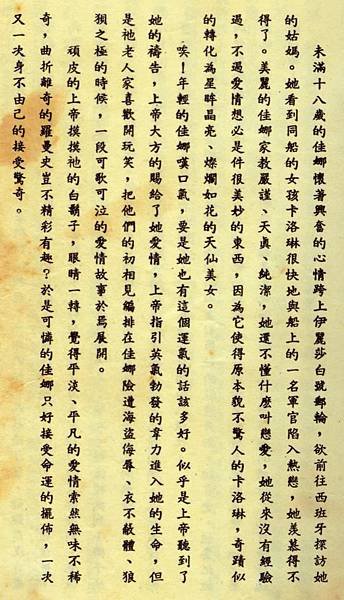 未滿十八歲的佳娜懷著興奮的心情跨上伊麗莎白號郵輪，欲前往西班牙探訪她
的姑媽。她看到同船的女孩卡洛琳很快地與船上的一名軍官陷入熱戀，她羨慕得不
得了。美麗的佳娜家教嚴謹、天真、純潔，她還不懂什麼叫戀愛，她從來沒有經驗
過，不過愛情想必是件很美妙的東西，因為它使得原本貌不驚人的卡洛琳，奇蹟似
的轉化為星眸晶亮、燦爛如花的天仙美女。
唉！年輕的佳娜嘆口氣，要是她也有這個運氣的話該多好。似乎是上帝聽到了
她的禱告，上帝大方的賜給了她愛情，上帝指引英氣勃發的韋力進入她的生命，但
是祂老人家喜歡開玩笑，把他們的初相見編排在佳娜險遭海盜侮辱、衣不蔽體、狼
狽之極的時候，一段可歌可泣的愛情故事於焉展開。
頑皮的上帝摸摸祂的白鬍子，眼睛一轉，覺得平淡、平凡的愛情索然無味不稀
奇，曲折離奇的羅曼史豈不精彩有趣？於是可憐的佳娜只好接受命運的擺佈，一次
又一次身不由己的接受驚奇。